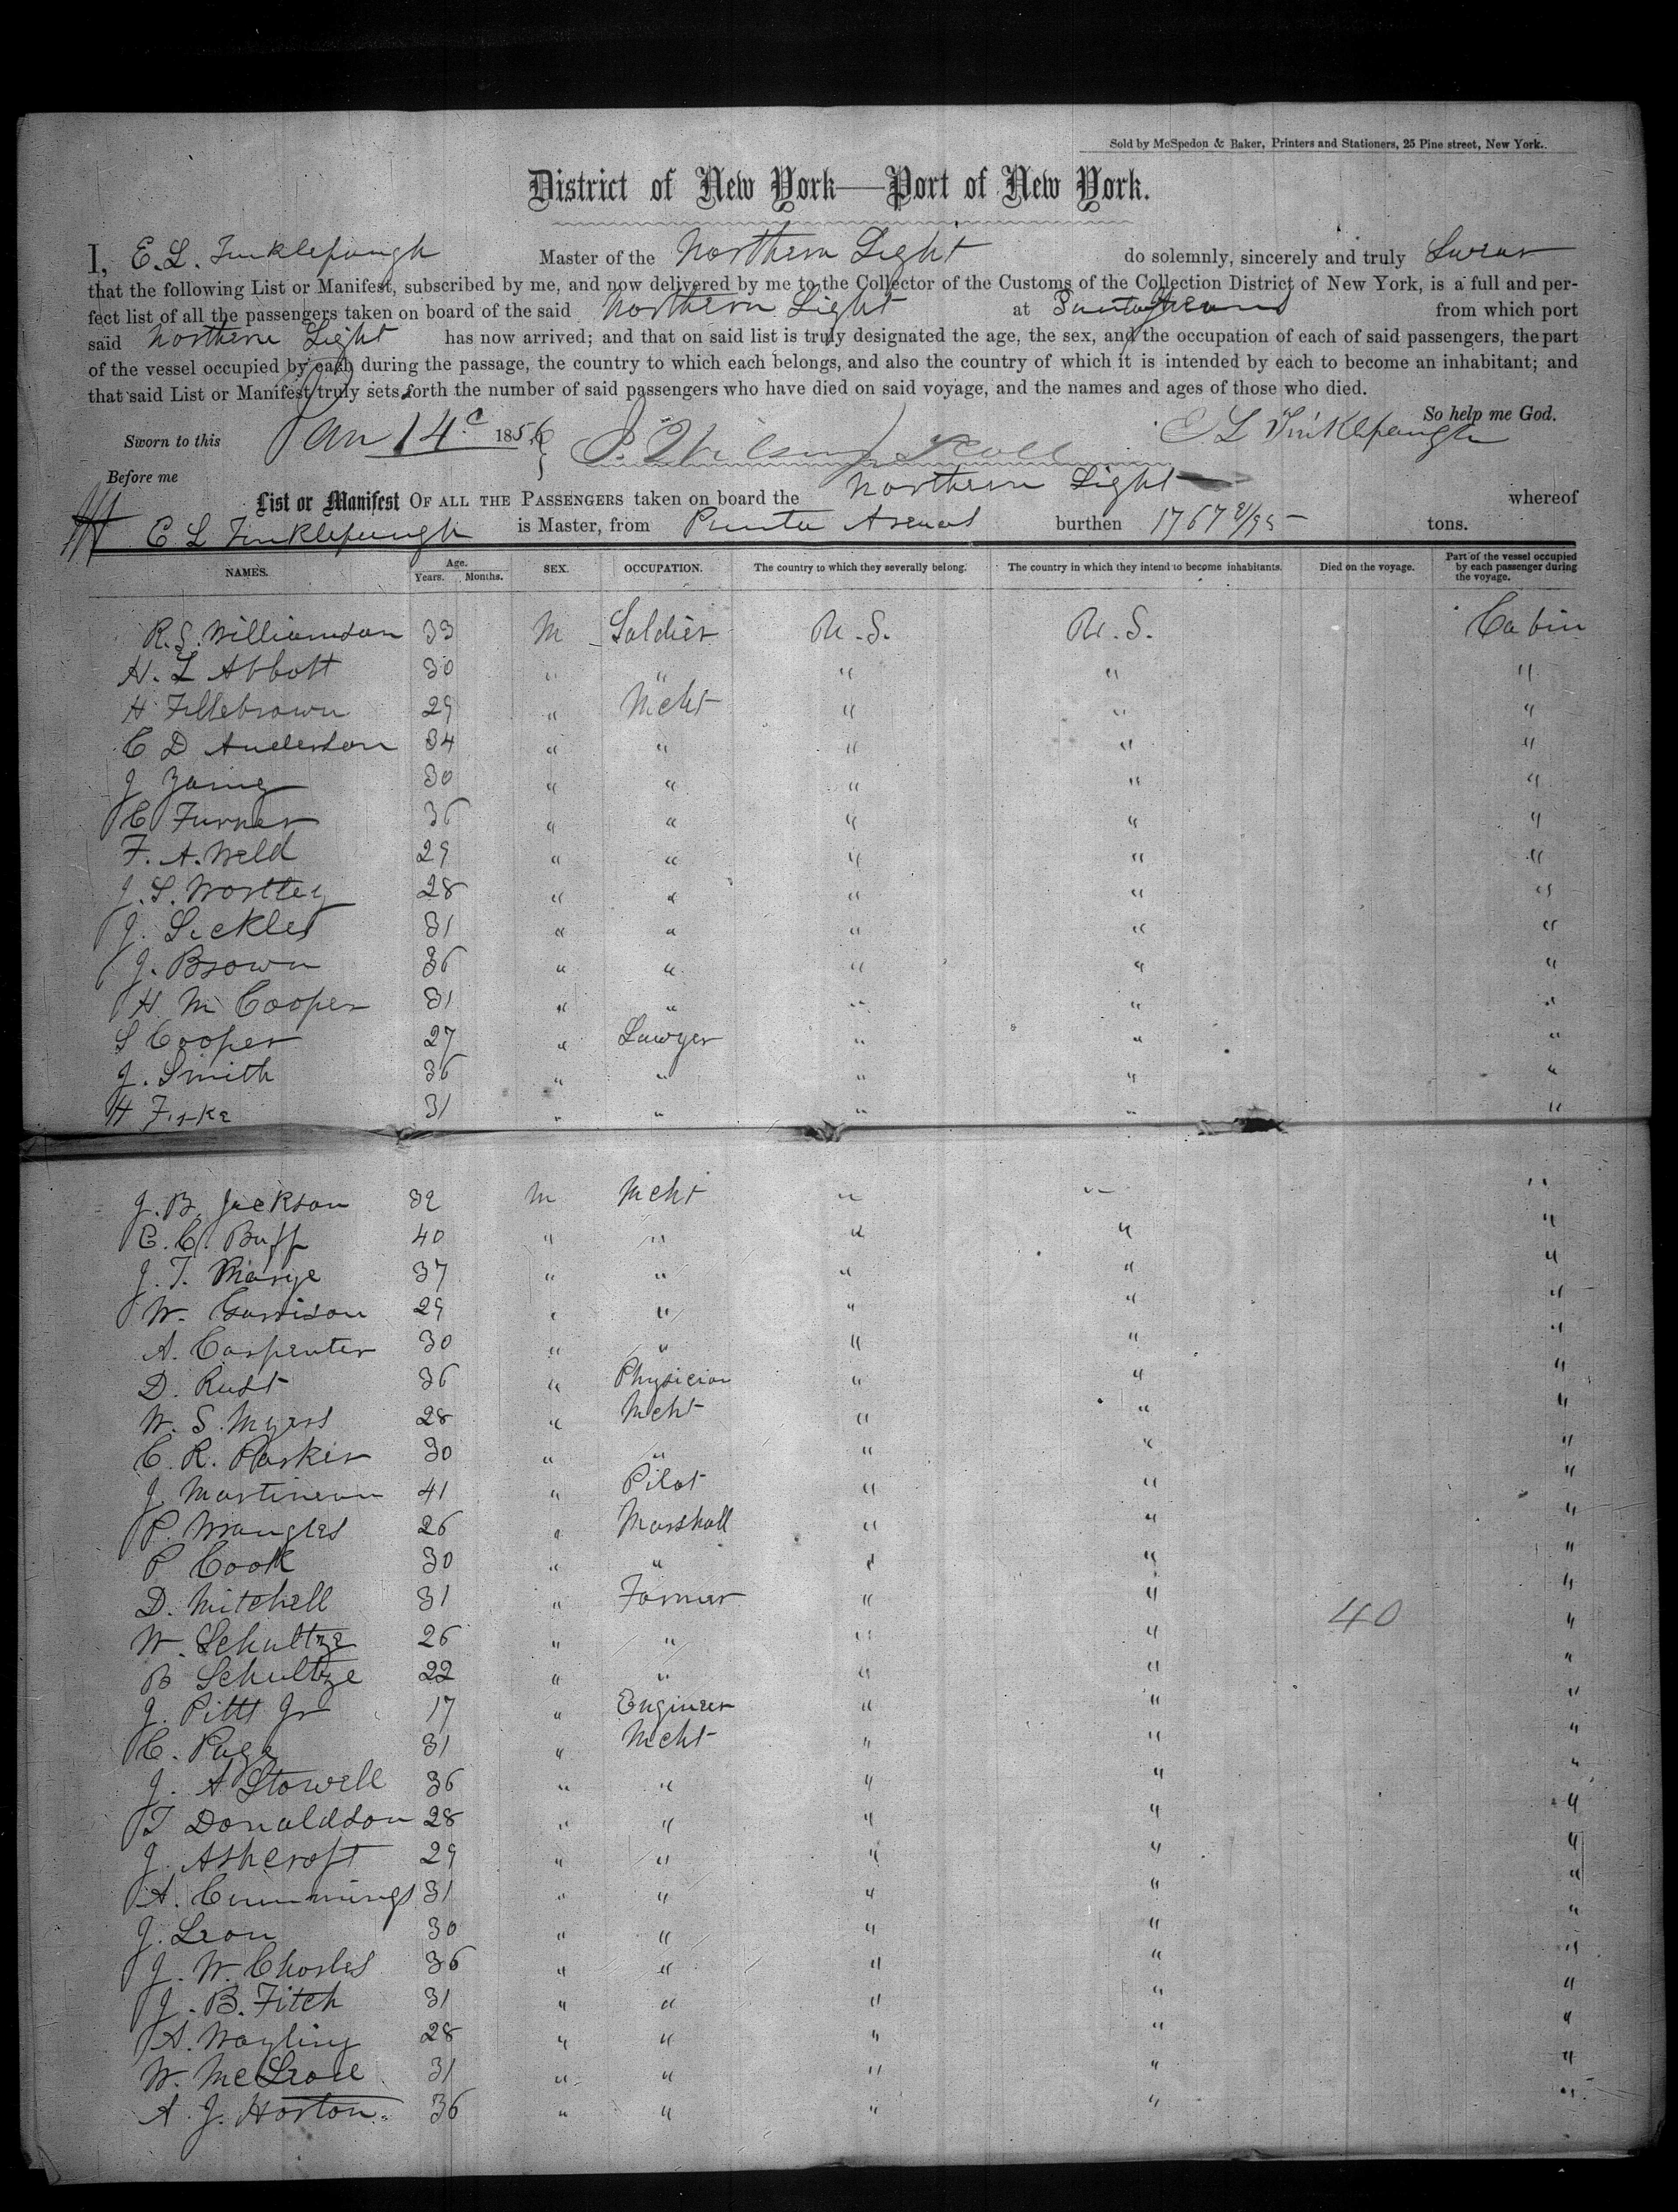 Sold by McSpedon & Baker, Printers and Stationers, 25 Pine street, New York.
District of New York—Port of New York.
I, E. L. Tinklepaugh Master of the Northern Light do solemnly, sincerely and truly Swear
that the following List or Manifest, subscribed by me, and now delivered by me to the Collector of the Customs of the Collection District of New York, is a full and per-
fect list of all the passengers taken on board of the said Northern Light at Punta Arenas from which port
said Northern Light has now arrived; and that on said list is truly designated the age, the sex, and the occupation of each of said passengers, the part
of the vessel occupied by each during the passage, the country to which each belongs, and also the country of which it is intended by each to become an inhabitant; and
that said List or Manifest truly sets forth the number of said passengers who have died on said voyage, and the names and ages of those who died.
So help me God.
Sworn to this Jan 14 1856 E L Tinklepaugh
Before me
List or Manifest OF ALL THE PASSENGERS taken on board the Northern Light whereof
E L Tinklepaugh is Master, from Punta Arenas burthen 1767 tons.
NAMES. Age. Years. Months. SEX. OCCUPATION. The country to which they severally belong. The country in which they intend to become inhabitants. Died on the voyage. Part of the vessel occupied by each passenger during the voyage.
R. S. Williamson 33 M Soldier U. S. U. S. Cabin
H. L Abbott 30 " " " " "
H Fillebrown 29 " Mcht " " "
C D Anderson 34 " " " " "
J 30 " " " " "
C Furner 36 " " " " "
F. A. Weld 29 " " " " "
J. S. Wortley 28 " " " " "
J. Sickles 31 " " " " "
J. Brown 36 " " " " "
H M Cooper 31 " " " " "
S Cooper 27 " Lawyer " " "
J. Smith 36 " " " " "
H Fiske 31 " " " " "
J. B. Jackson 32 M Mcht " " "
C. C. Buff 40 " " " " "
J. T. 37 " " " " "
W. Garrison 29 " " " " "
A. Carpenter 30 " " " " "
D. Rust 36 " Physician " " "
W. S. Myers 28 " Mcht " " "
C. R. Parker 30 " " " " "
J Martineau 41 " Pilot " " "
P. Wrangles 26 " Marshall " " "
P Cook 30 " " " " "
D. Mitchell 31 " Farmer " " "
W. Schultze 26 " " " " 40 "
B Schultze 22 " " " " "
J. Pitts Jr 17 " Engineer " " "
C. Page 31 " Mcht " " "
J. A Stowell 36 " " " " "
T Donaldson 28 " " " " "
J. Ashcroft 29 " " " " "
A. Cummings 31 " " " " "
J. Leon 30 " " " " "
J. W. Charles 36 " " " " "
J. B. Fitch 31 " " " " "
A. Wayling 28 " " " " "
W. 31 " " " " "
A. J. Horton 36 " " " " "